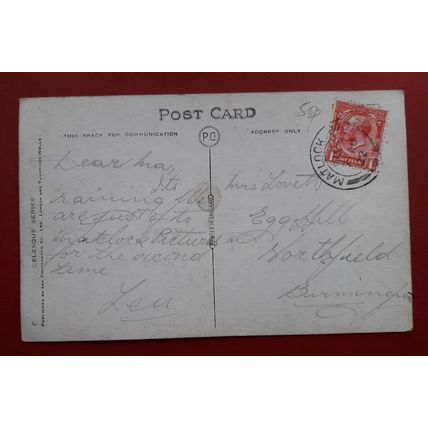 POST CARD
50p
THIS SPACE FOR COMMUNICATION
P.C.
ADDRESS ONLY
MATLOCK
Dear Ma,
Its
raining We
are just of to
Matlock Pictures
for the second
time
Len
Mrs Lovett
Egghill
Northfield
Birmingham
CELESQUE SERIES
PUBLISHED BY THE PHOTOCHROM CO., LTD., LONDON AND TUNBRIDGE WELLS